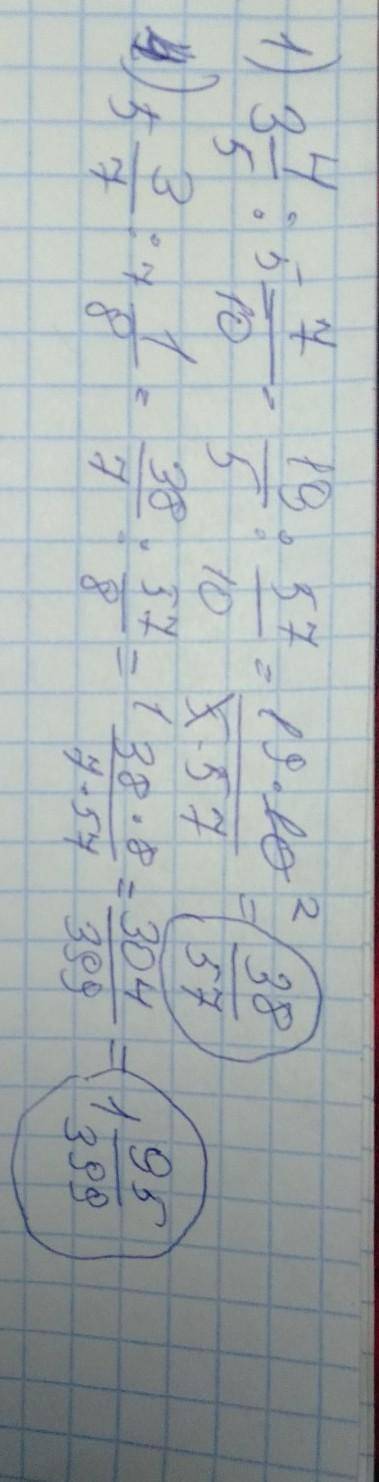 1) 3 4/5 : 5 7/10 = 19/5 : 57/10 = 19 · 10 2 / 5 · 57 1 = 38/57
4) 5 3/7 : 7 1/8 = 38/7 : 57/8 = 38 · 8 / 7 · 57 = 304/399 = 1 95/399